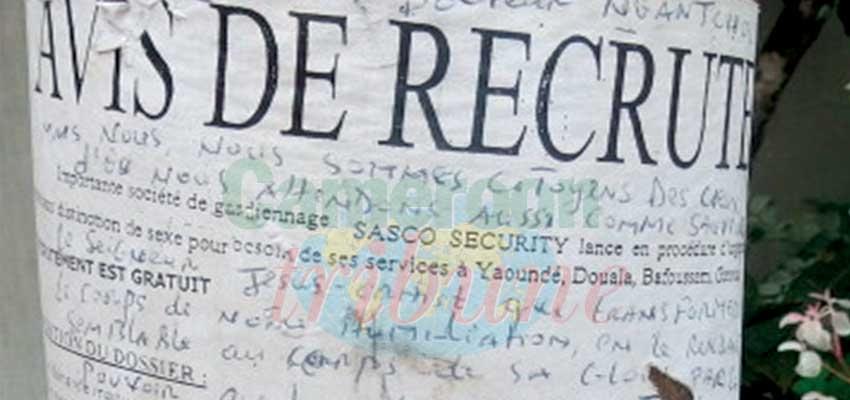 NGANTCHOU
AVIS DE RECRUTE
MAIS NOUS, NOUS SOMMES CITOYENS DES CIEUX
D'OÙ NOUS ATTENDONS AUSSI COMME SAUVEUR
Importante société de gardiennage SASCO SECURITY lance en procédure
distinction de sexe pour besoin de ses services à Yaoundé, Douala, Bafoussam, Garoua
le Seigneur JESUS-CHRIST QUI TRANSFORMERA
TEMENT EST GRATUIT
le CORPS de NOTRE HUMILIATION, EN LE RENDANT
SEMBLABLE AU CORPS DE SA GLOIRE PAR LE
TION DU DOSSIER :
POUVOIR
Cameroon
tribune